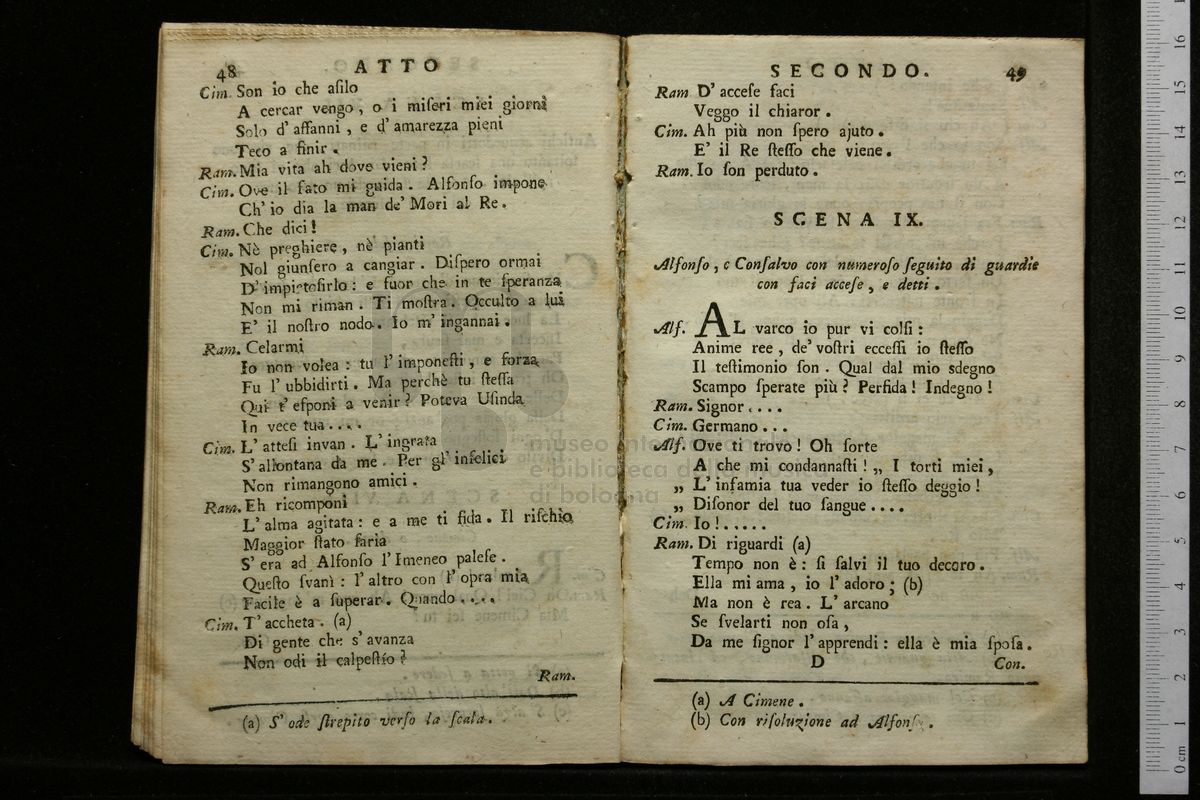 48 ATTO
Cim. Son io che aſilo
A cercar vengo, o i miſeri miei giorni
Solo d' affanni, e d' amarezza pieni
Teco a finir.
Ram. Mia vita ah dove vieni?
Cim. Ove il fato mi guida. Alfonſo impone
Ch' io dia la man de' Mori al Re.
Ram. Che dici!
Cim. Nè preghiere, nè pianti
Nol giunſero a cangiar. Diſpero ormai
D' impietoſirlo: e fuor che in te ſperanza
Non mi riman. Ti moſtra. Occulto a lui
E' il noſtro nodo. Io m' ingannai.
Ram. Celarmi
Io non volea: tu l' imponeſti, e forza
Fu l' ubbidirti. Ma perchè tu ſteſſa
Qui t' eſponi a venir? Poteva Uſinda
In vece tua....
Cim. L' atteſi invan. L' ingrata
S' allontana da me. Per gl' infelici
Non rimangono amici.
Ram. Eh ricomponi
L' alma agitata: e a me ti fida. Il riſchio
Maggior ſtato ſaria
S' era ad Alfonſo l' Imeneo paleſe.
Queſto ſvanì: l' altro con l' opra mia
Facile è a ſuperar. Quando....
Cim. T' accheta. (a)
Di gente che s' avanza
Non odi il calpeſtío?
Ram.
(a) S' ode ſtrepito verſo la ſcala.
SECONDO. 49
Ram D' acceſe faci
Veggo il chiaror.
Cim. Ah più non ſpero ajuto.
E' il Re ſteſſo che viene.
Ram. Io ſon perduto.
SCENA IX.
Alfonſo, e Conſalvo con numeroſo ſeguito di guardie
con faci acceſe, e detti.
Alf. AL varco io pur vi colſi:
Anime ree, de' voſtri ecceſſi io ſteſſo
Il teſtimonio ſon. Qual dal mio sdegno
Scampo ſperate più? Perfida! Indegno!
Ram. Signor....
Cim. Germano...
Alf. Ove ti trovo! Oh ſorte
A che mi condannaſti! „ I torti miei,
„ L' infamia tua veder io ſteſſo deggio!
„ Diſonor del tuo ſangue....
Cim. Io!.....
Ram. Di riguardi (a)
Tempo non è: ſi ſalvi il tuo decoro.
Ella mi ama, io l' adoro; (b)
Ma non è rea. L' arcano
Se ſvelarti non oſa,
Da me ſignor l' apprendi: ella è mia ſpoſa.
D Con.
(a) A Cimene.
(b) Con riſoluzione ad Alfonſo.
museo internazionale
e biblioteca della musica
di bologna
0 cm 1 2 3 4 5 6 7 8 9 10 11 12 13 14 15 16